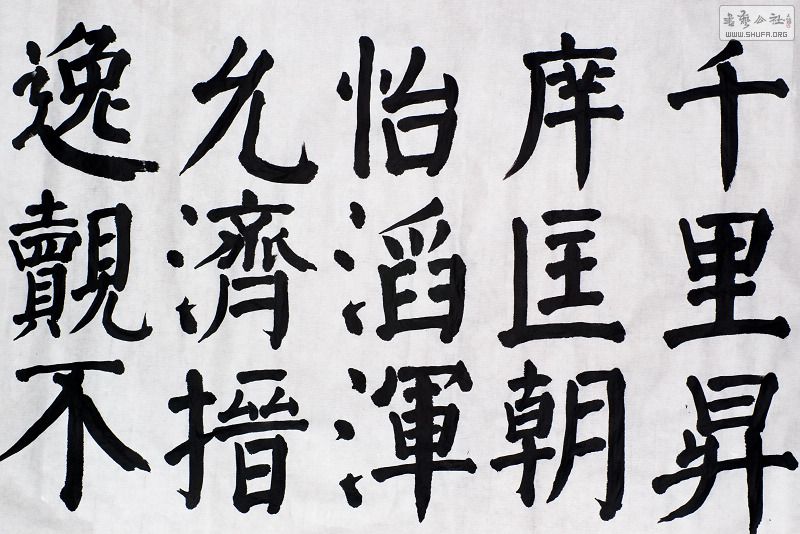 千里昇
庠匡朝
怡滔渾
允濟搢
逸覿不
書藝公社
WWW.SHUFA.ORG